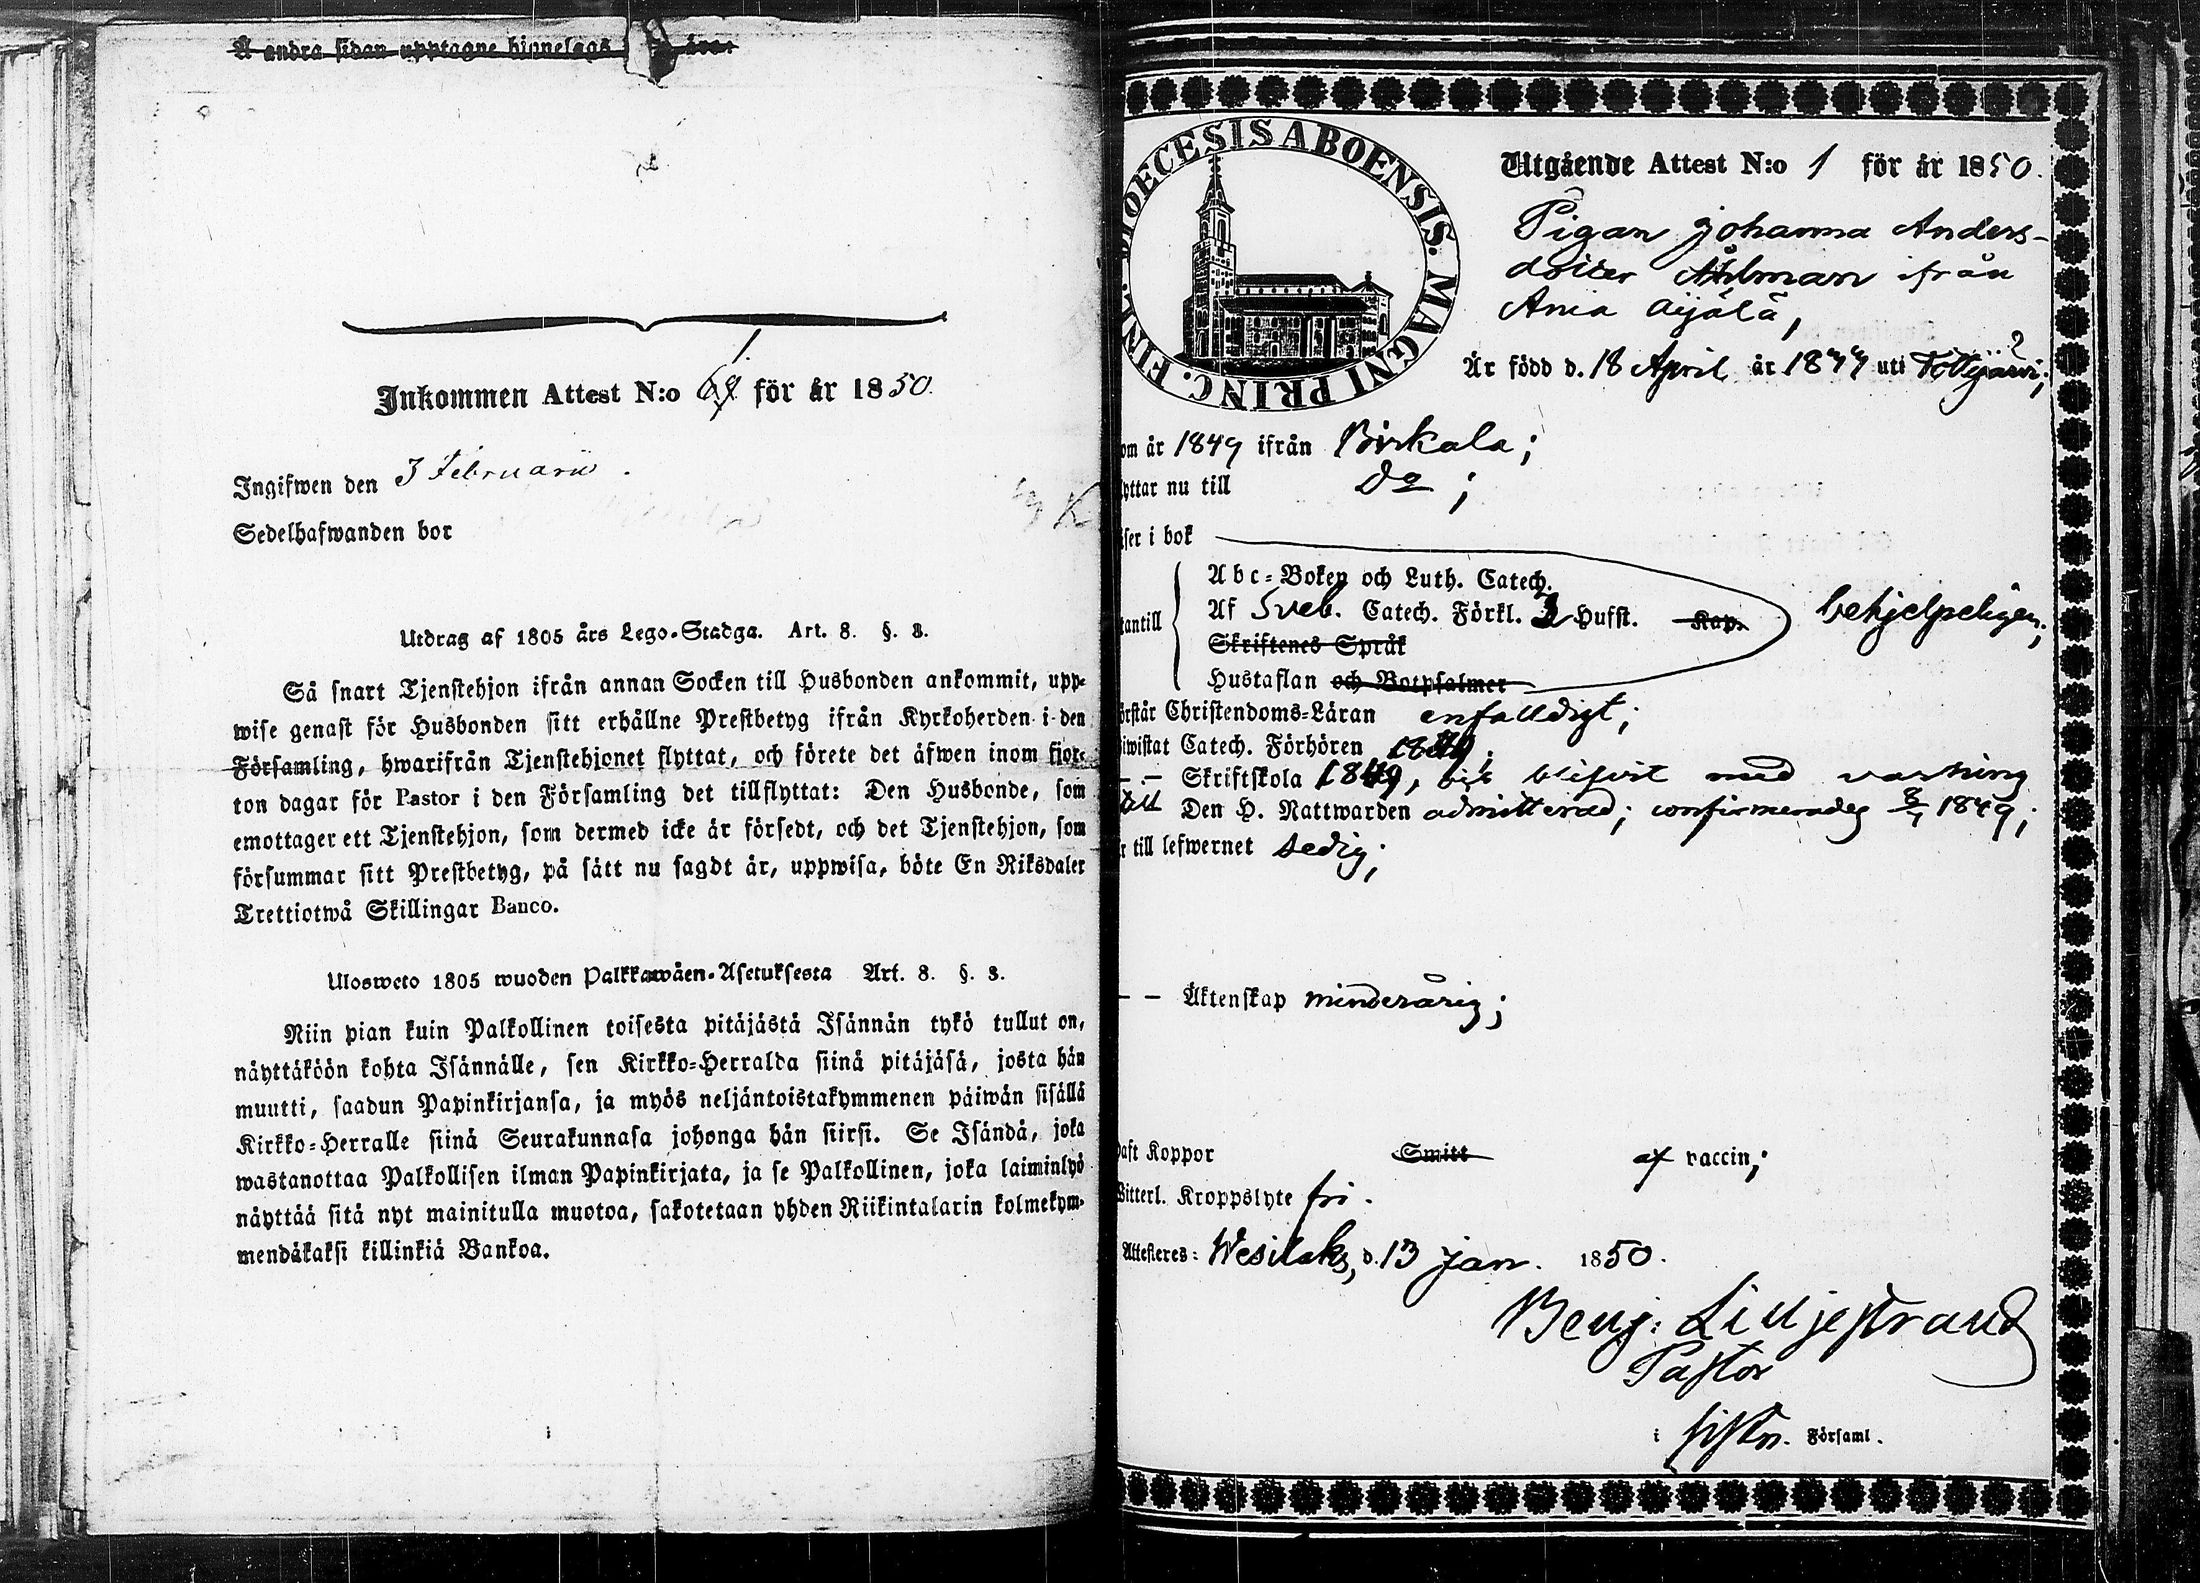 Å andra sidan upptagne hinnelags
1.
Inkommen Attest N:o för år 1850.
Ingifwen den 3 Februarii.
Sedelhafwanden bor
Utdrag af 1805 års Lego-Stadga. Art. 8. §. 3.
Så snart Tjenstehjon ifrån annan Socken till Husbonden ankommit, upp-
wise genast för Husbonden sitt erhållne Prestbetyg ifrån Kyrkoherden i den
Församling, hwarifrån Tjenstehjonet flyttat, och förete det äfwen inom fjor-
ton dagar för Pastor i den Församling det tillflyttat: Den Husbonde, som
emottager ett Tjenstehjon, som dermed icke är försedt, och det Tjenstehjon, som
försummar sitt Prestbetyg, på sätt nu sagdt är, uppwisa, böte En Riksdaler
Trettiotwå Skillingar Banco.
Ulosweto 1805 wuoden Palkkawäen-Asetuksesta Art. 8. §. 3.
Niin pian kuin Palkollinen toisesta pitäjästä Isännän tykö tullut on,
näyttäköön kohta Isännälle, sen Kirkko-Herralda siinä pitäjäsä, josta hän
muutti, saadun Papinkirjansa, ja myös neljäntoistakymmenen päiwän sisällä
Kirkko-Herralle siinä Seurakunnasa johonga hän siirsi. Se Isändä, joka
wastanottaa Palkollisen ilman Papinkirjata, ja se Palkollinen, joka laiminlyö
näyttää sitä nyt mainitulla muotoa, sakotetaan yhden Riikintalarin kolmekym-
mendäkaksi killinkiä Bankoa.
DIOECESIS ABOENSIS. MAGNI PRINC. FINL.
Utgående Attest N:o 1 för år 1850.
Pigan Johanna Anders-
dotter Åhlman ifrån
Ania Äijälä,
Är född d. 18 April år 18 uti Tottijärvi;
om år 1849 ifrån Birkala;
yttar nu till do;
äser i bok
Abc-Boken och Luth. Catech.
tantill Af Sveb. Catech. Förkl. 3 Hufst. Kap. behjelpeligen;
Skriftenes Språk
Hustaflan och Botpsalmer
örstår Christendoms-Läran enfalldigt;
iwistat Catech. Förhören 1849;
— — Skriftskola 1849, med varning
till Den H. Nattwarden admitterad; confirmerades 8/7 1849;
r till lefwernet sedig;
— — Äktenskap minderårig;
aft Koppor Smitt af vaccin;
Witterl. Kroppslyte fri.
Attesteres: Wesilaks, d. 13 Jan. 1850.
Benj: Liljestrand
Pastor
i Församl.